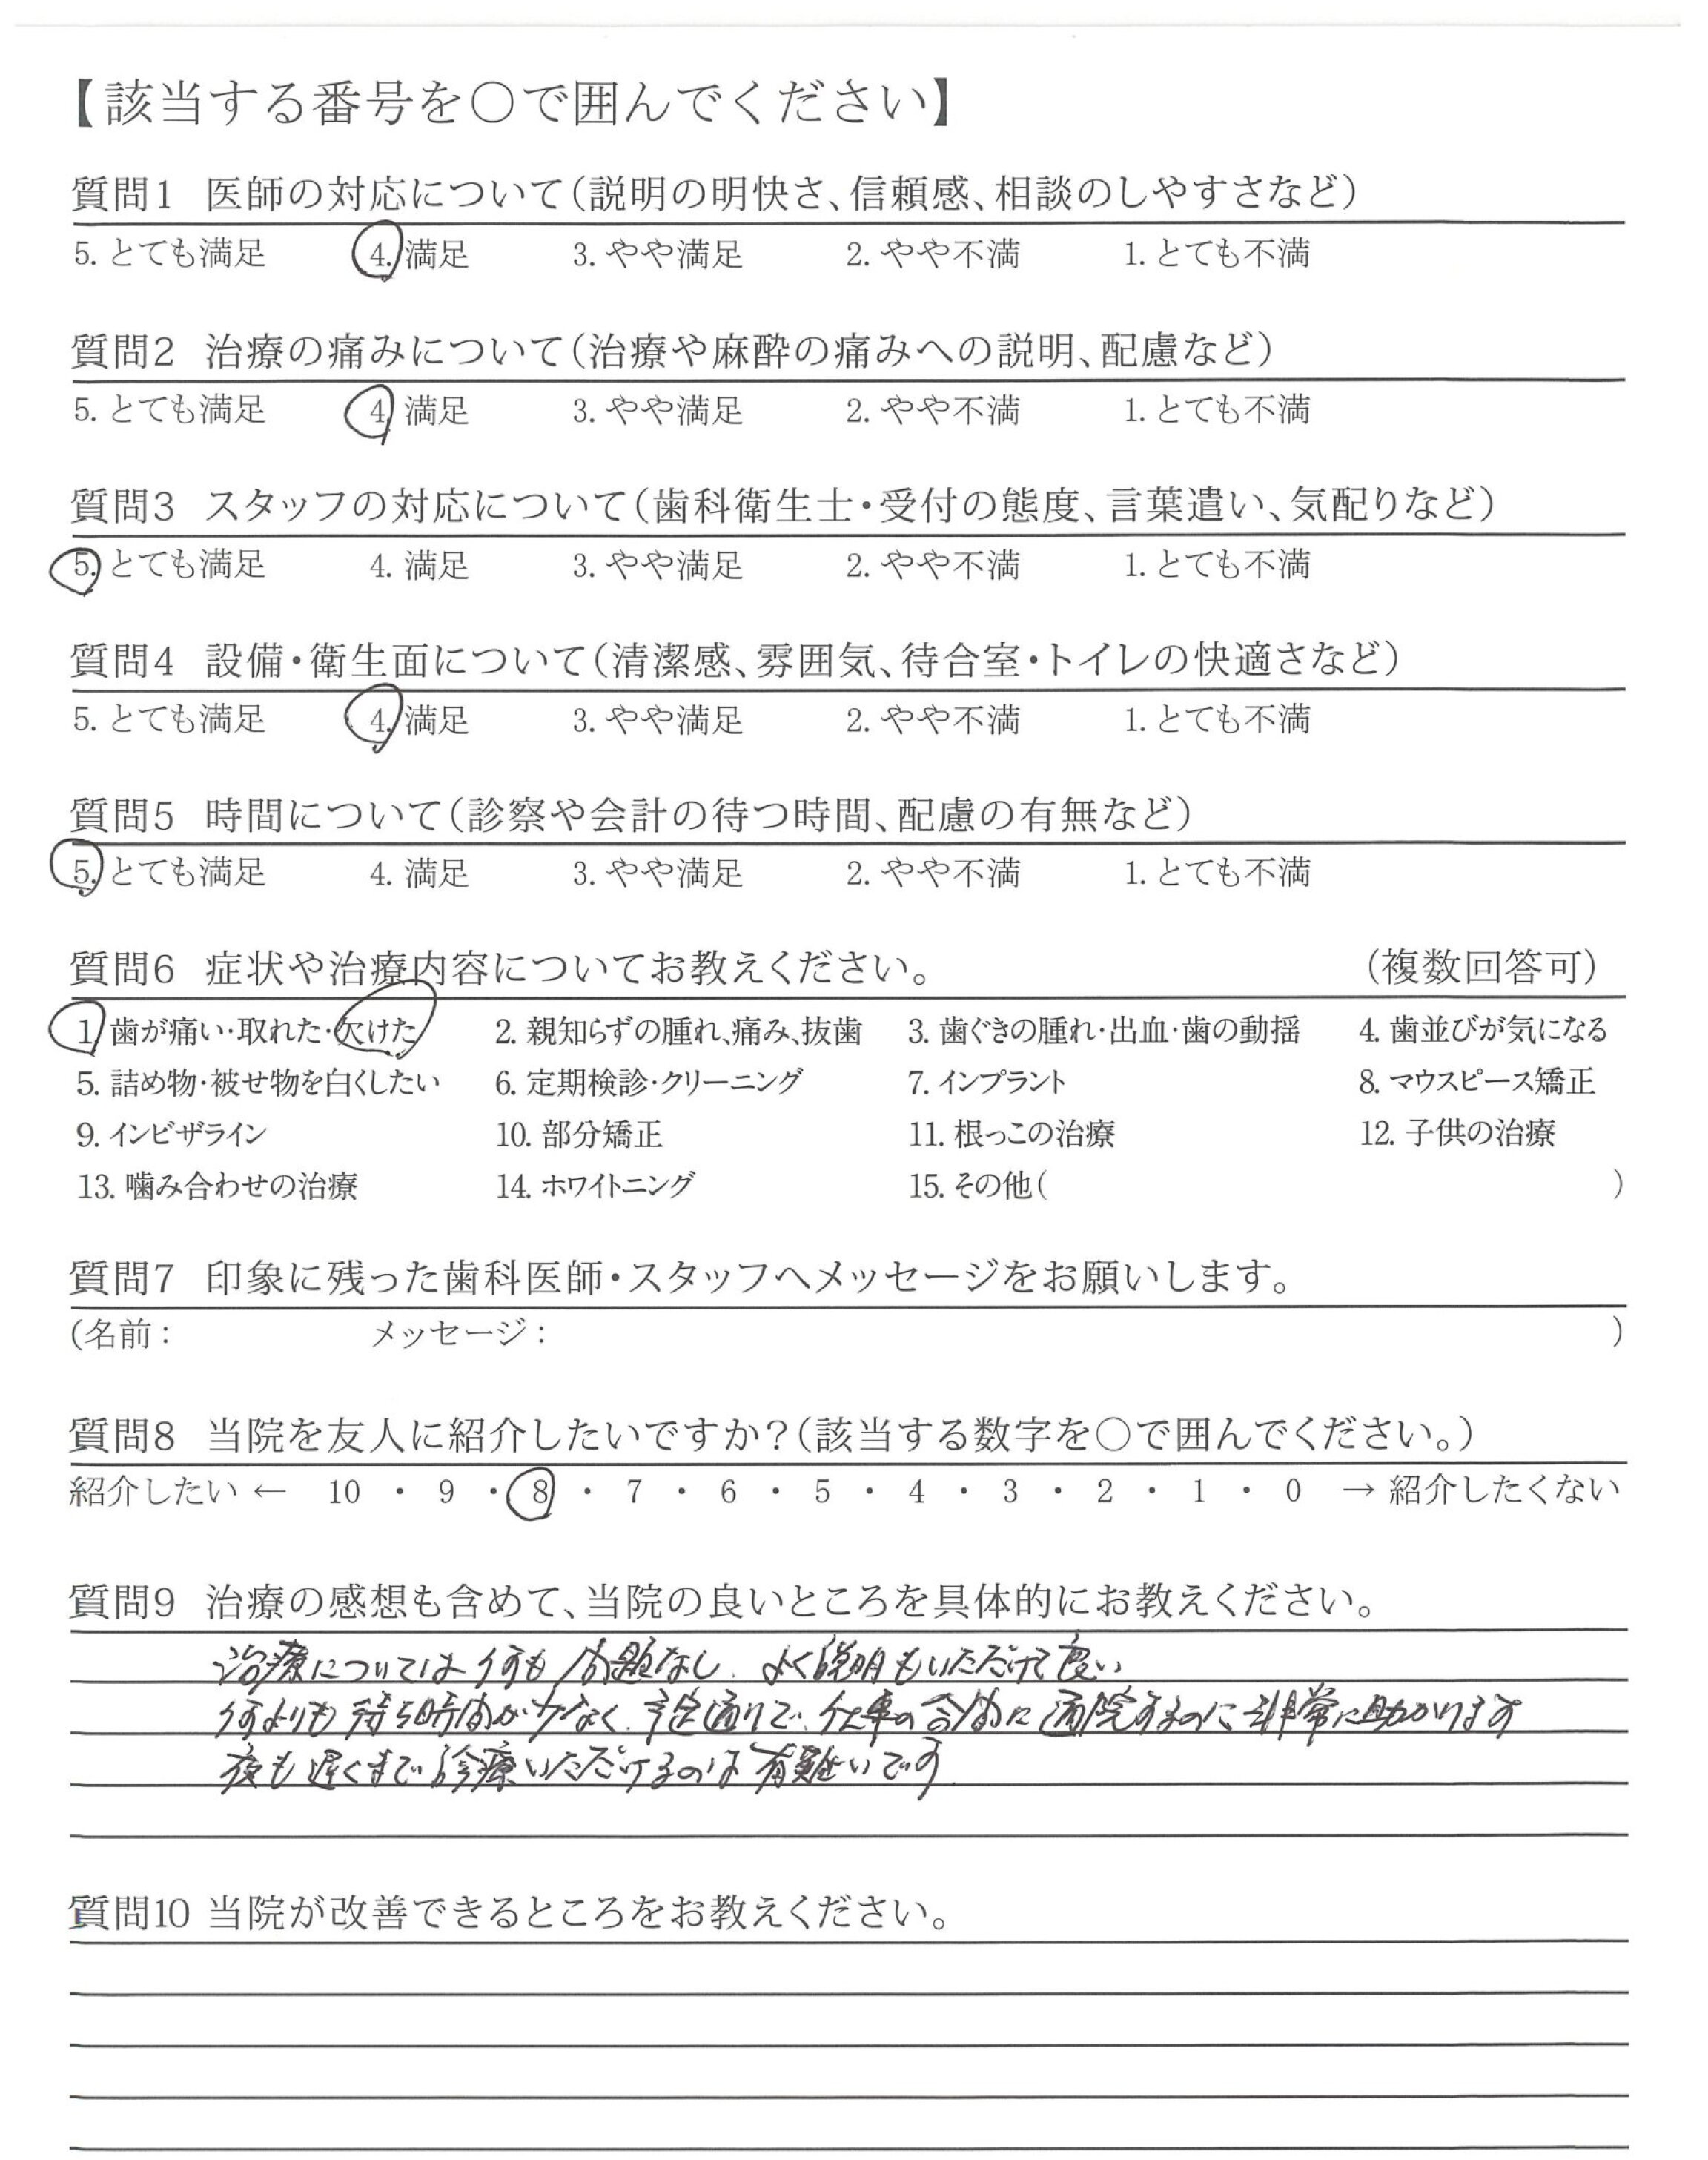 【該当する番号を○で囲んでください】
質問1 医師の対応について(説明の明快さ、信頼感、相談のしやすさなど)
5. とても満足 4. 満足 3. やや満足 2. やや不満 1. とても不満
質問2 治療の痛みについて(治療や麻酔の痛みへの説明、配慮など)
5. とても満足 4. 満足 3. やや満足 2. やや不満 1. とても不満
質問3 スタッフの対応について(歯科衛生士・受付の態度、言葉遣い、気配りなど)
5. とても満足 4. 満足 3. やや満足 2. やや不満 1. とても不満
質問4 設備・衛生面について(清潔感、雰囲気、待合室・トイレの快適さなど)
5. とても満足 4. 満足 3. やや満足 2. やや不満 1. とても不満
質問5 時間について(診察や会計の待つ時間、配慮の有無など)
5. とても満足 4. 満足 3. やや満足 2. やや不満 1. とても不満
質問6 症状や治療内容についてお教えください。 (複数回答可)
1. 歯が痛い・取れた・欠けた 2. 親知らずの腫れ、痛み、抜歯 3. 歯ぐきの腫れ・出血・歯の動揺 4. 歯並びが気になる
5. 詰め物・被せ物を白くしたい 6. 定期検診・クリーニング 7. インプラント 8. マウスピース矯正
9. インビザライン 10. 部分矯正 11. 根っこの治療 12. 子供の治療
13. 噛み合わせの治療 14. ホワイトニング 15. その他( )
質問7 印象に残った歯科医師・スタッフへメッセージをお願いします。
(名前： メッセージ： )
質問8 当院を友人に紹介したいですか？(該当する数字を○で囲んでください。)
紹介したい ← 10 ・ 9 ・ 8 ・ 7 ・ 6 ・ 5 ・ 4 ・ 3 ・ 2 ・ 1 ・ 0 → 紹介したくない
質問9 治療の感想も含めて、当院の良いところを具体的にお教えください。
治療については何も問題なし、よく説明もいただけて良い
何よりも待ち時間が少なく、予定通りで、仕事の合間に通院するのに非常に助かります
夜も遅くまで診療いただけるのは有難いです
質問10 当院が改善できるところをお教えください。